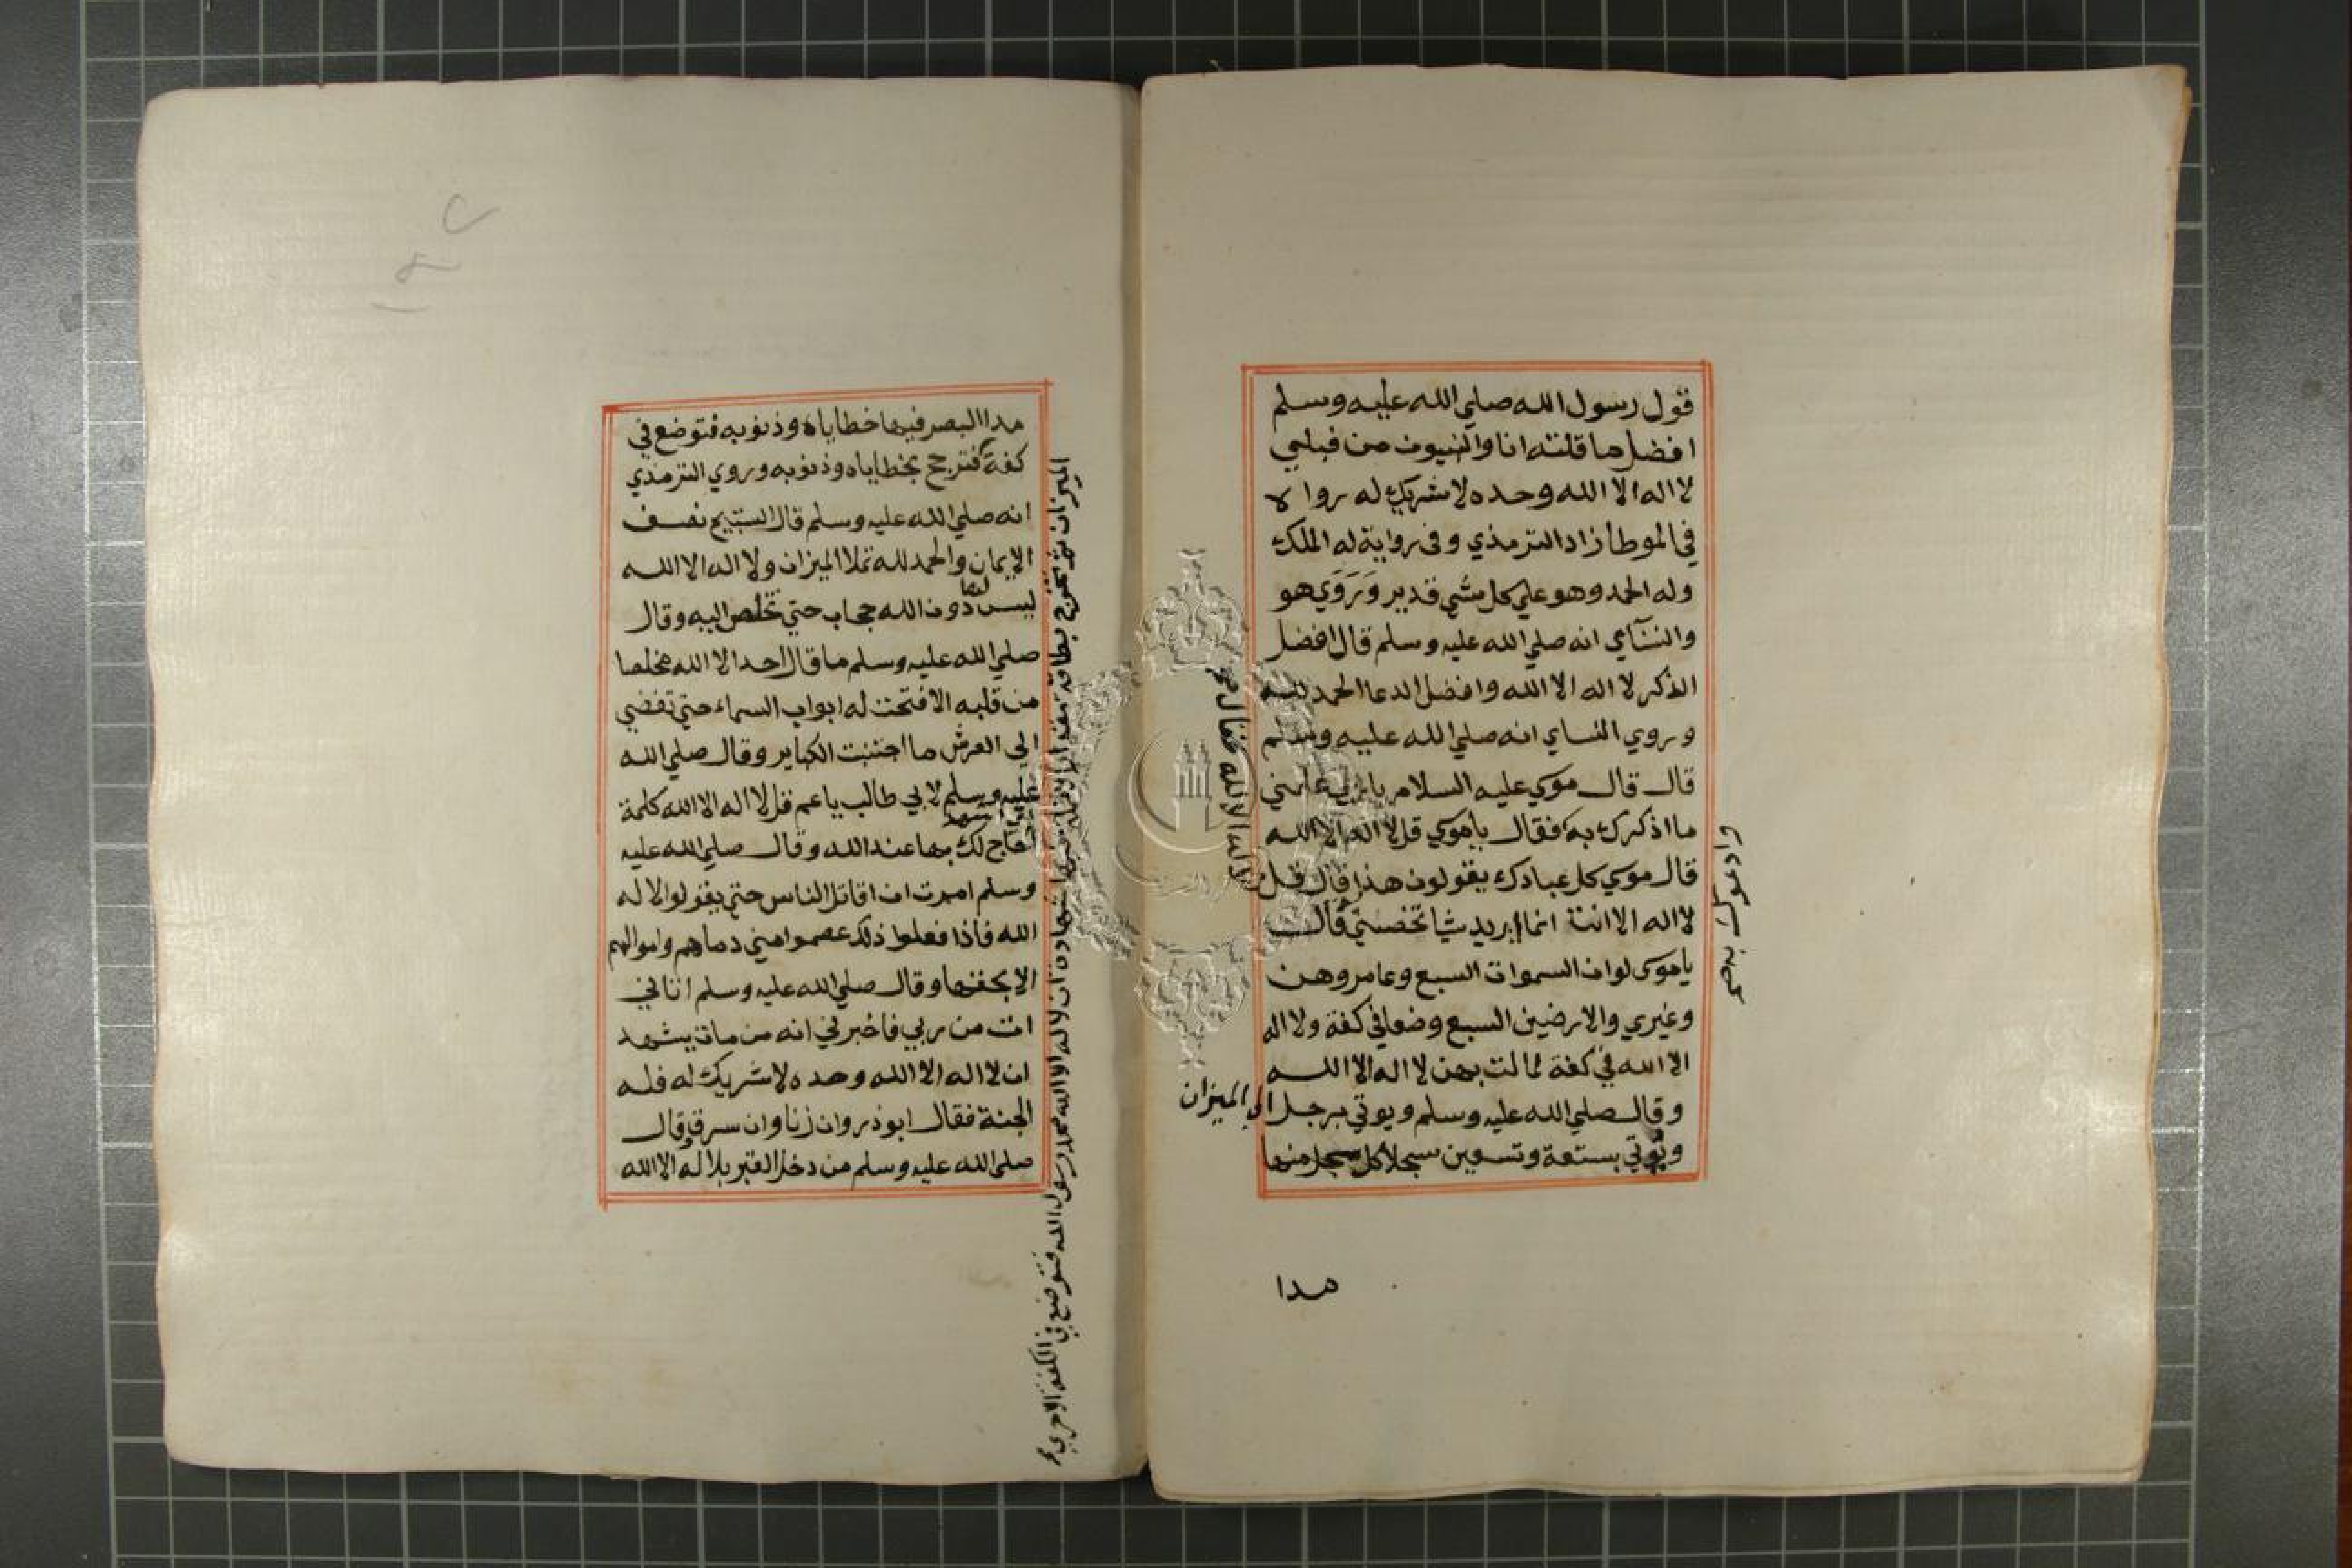 قول رسول الله صلي الله عليه وسلم
افضل ما قلته انا والنبيون من قبلي
لا اله الا الله وحده لا شريك له روا لا
في الموطا زاد الترمذي وفي رواية له الملك
وله الحمد وهو علي كل شي قدير وَرَوَي هو
والنسآءي انه صلي الله عليه وسلم قال افضل
الذكر لا اله الا الله وافضل الدعا الحمد لله
وروي النساي انه صلي الله عليه وسلم
قال قال موسي عليه السلام يا رب علمني
ما اذكرك به فقال يا موسي قل لا اله الا الله
وادعوك به صح
قال موسي كل عبادك يقولون هذا قال قل
لا اله الا الله فقال صح
لا اله الا انت انما اريد شيا تخصني قال
يا موسى لوان السموات السبع وعامروهن
وغيري والارضين السبع وضعا في كفة ولا اله
الا الله في كفة لمالت بهن لا اله الا الله
وقال صلي الله عليه وسلم ويوتي برجل الي الميزان
ويوتي بستعة وتسعين سجلا كل سجل منها
مدا
مدا البصر فيها خطاياه وذنوبه فتوضع في
كفة فترجح بخطاياه وذنوبه وروي الترمذي
الميزان ثم تخرج بطاقة الانملة فيها شهادة ان لا اله الا الله محمد رسول الله فتوضع في الكفة الاخري
انه صلي الله عليه وسلم قال التسبيح نصف
الايمان والحمد لله تملا الميزان ولا اله الا الله
ليس لها دون الله حجاب حتي تخلص اليه وقال
صلي الله عليه وسلم ما قال احد الا الله مخلصا
من قلبه الا فتحت له ابواب السماء حتي تفضي
الي العرش ما اجتنبت الكباير وقال صلي الله
عليه وسلم لابي طالب يا عم قل لا اله الا الله كلمة
احاج لك بها عند الله وقال صلي الله عليه
وسلم امرت ان اقاتل الناس حتي يقولوا لا اله
الله فاذا فعلوا ذلك عصموا مني دماهم واموالهم
الا بحقها وقال صلي الله عليه وسلم اتاني
ات من ربي فاخبرني انه من مات يشهد
ان لا اله الا الله وحده لا شريك له فله
الجنة فقال ابوذر وان زنا وان سرق وقال
صلي الله عليه وسلم من دخل القبر بلا اله الا الله